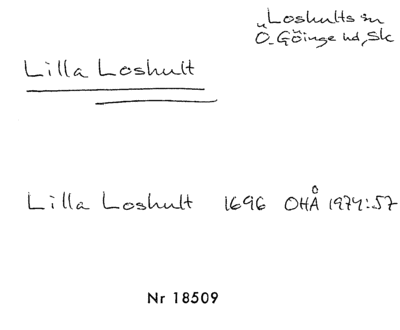 Loshults sn
Ö. Göinge hd, Sk
Lilla Loshult
Lilla Loshult 1696 OHÅ 1974:57
Nr 18509